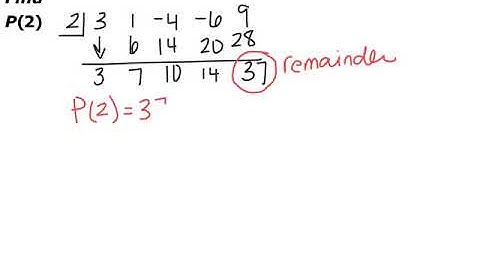 P(2) 2 3 1 -4 -6 9
↓ 6 14 20 28
3 7 10 14 37 remainder
P(2) = 37